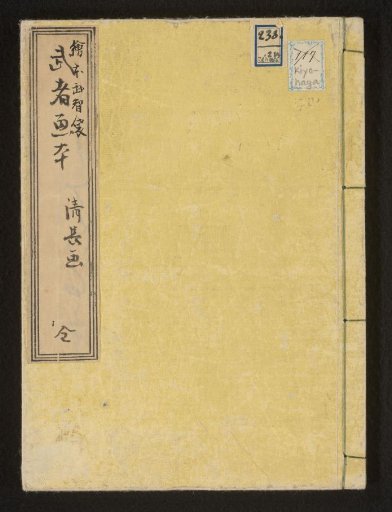 繪本武智袋
武者画本
清長画
全
238
Kiyo-
naga